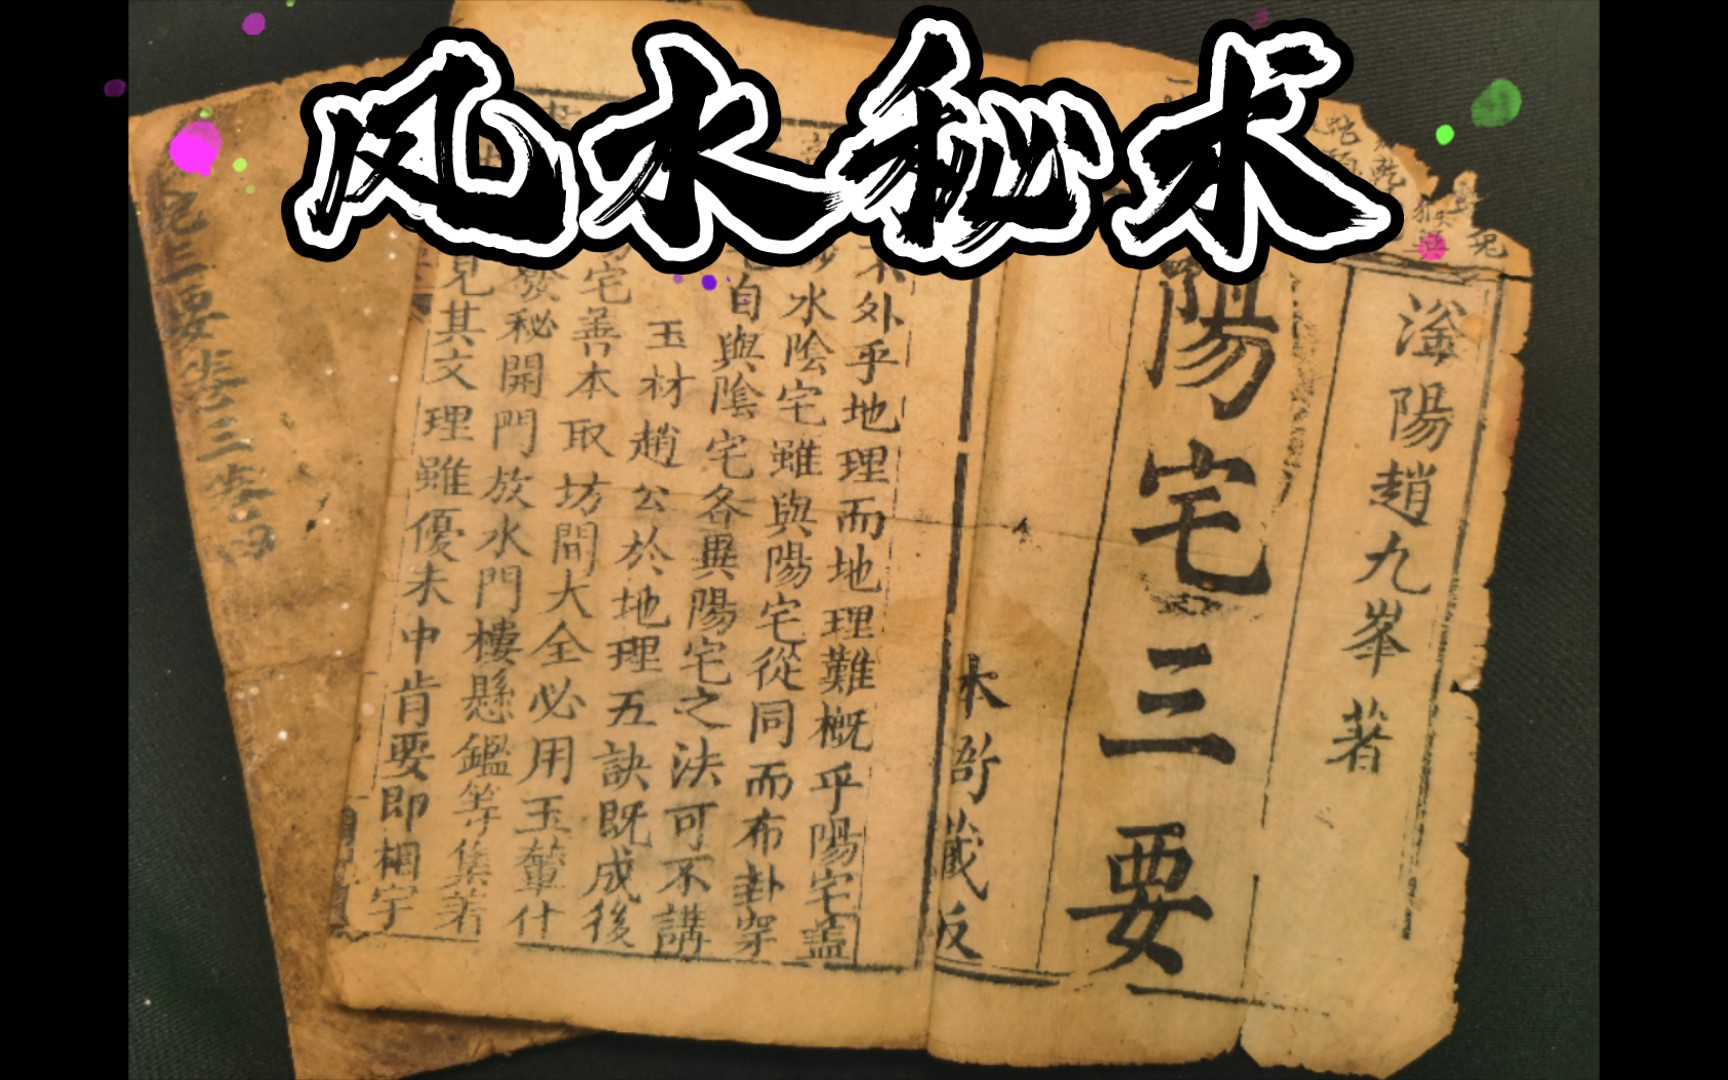 风水秘术
滏陽趙九峯著
陽宅三要
本衙藏
外乎地理而地理難概乎陽宅蓋
水陰宅雖與陽宅從同而布卦穿
自與陰宅各異陽宅之法可不講
玉材趙公於地理五訣既成後
宅善本取坊間大全必用玉輦什
發秘開門放水門樓懸鑑等集著
見其文理雖優未中肯要即相宇
宅三要卷三卷四